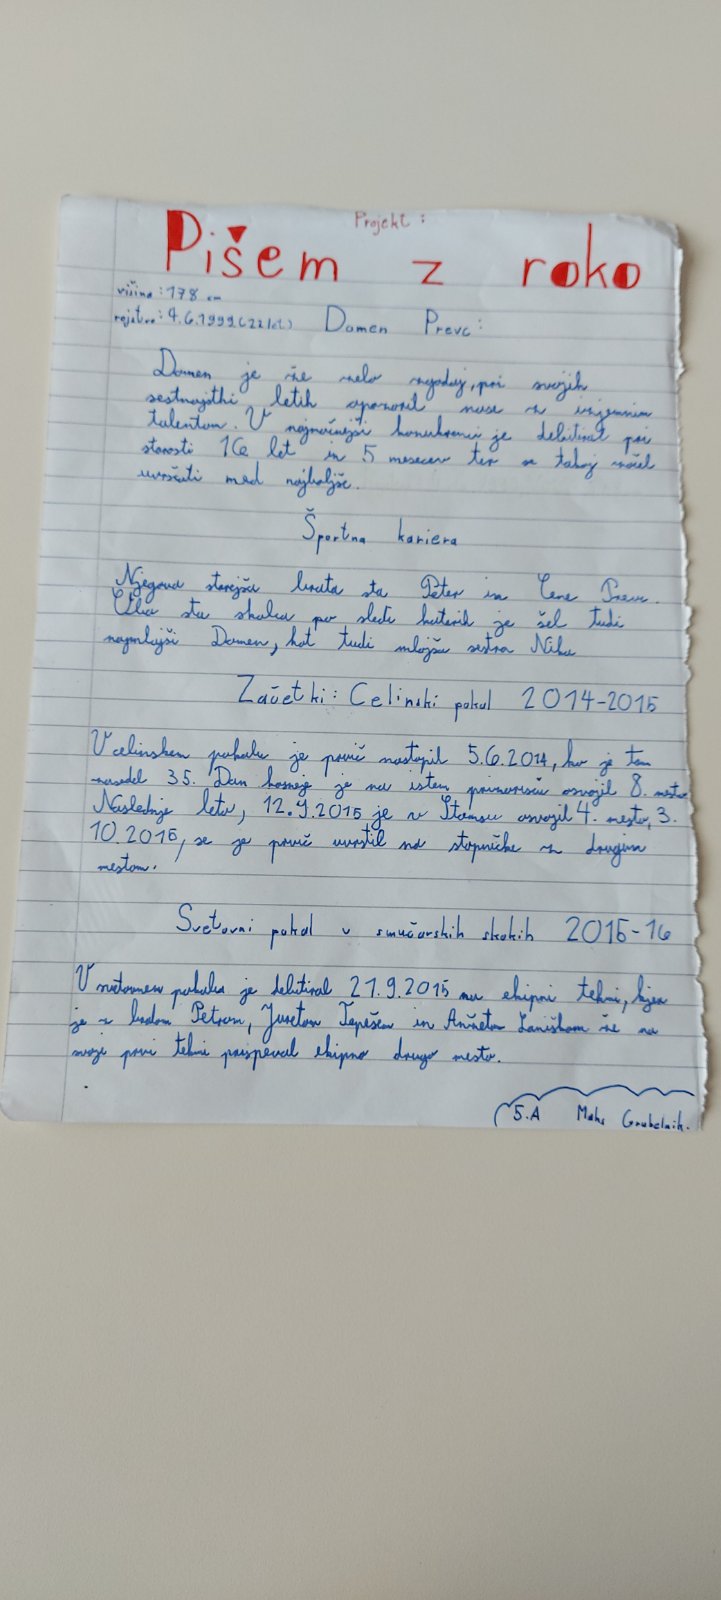 Projekt:
Pišem z roko
višina: 178 cm
rojstvo: 4.6.1999 (22 let)
Domen Prevc:
Domen je že zelo zgodaj, pri svojih
šestnajstih letih opozoril nase z izjemnim
talentom. V najmočnejši konkurenci je debitiral pri
starosti 16 let in 5 mesecev ter se takoj začel
uvrščati med najboljše.
Športna kariera
Njegova starejša brata sta Peter in Cene Prevc.
Oba sta skakalca po sledi katerih je šel tudi
najmlajši Domen, kot tudi mlajša sestra Nika
Začetki: Celinski pokal 2014-2015
V celinskem pokalu je prvič nastopil 5.6.2014, ko je tam
zasedel 35. Dan kasneje je na istem prizorišču osvojil 8. mesto
Naslednje leto, 12.9.2015 je v Stamsu osvojil 4. mesto, 3.
10.2015, se je prvič uvrstil na stopničke z drugim
mestom.
Svetovni pokal v smučarskih skokih 2015-16
V svetovnem pokalu je debitiral 21.9.2015 na ekipni tekmi, kjer
je z bratom Petrom, Juretom Tepešem in Anžetom Laniškom že na
svoji prvi tekmi prispeval ekipno drugo mesto.
5.A Maks Grubelnik.